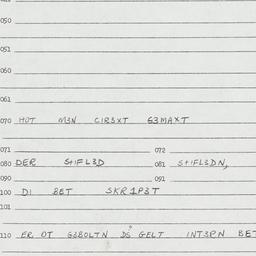 050
051
060
061
070 HOT M3N CIR3XT G3MAXT
071 072
080 DER StIFL3D 081 StIFL3DN,
090 091
100 DI BET SKR1P3T
101
110 ER OT G3BOLTN DS GELT INT3RN BET